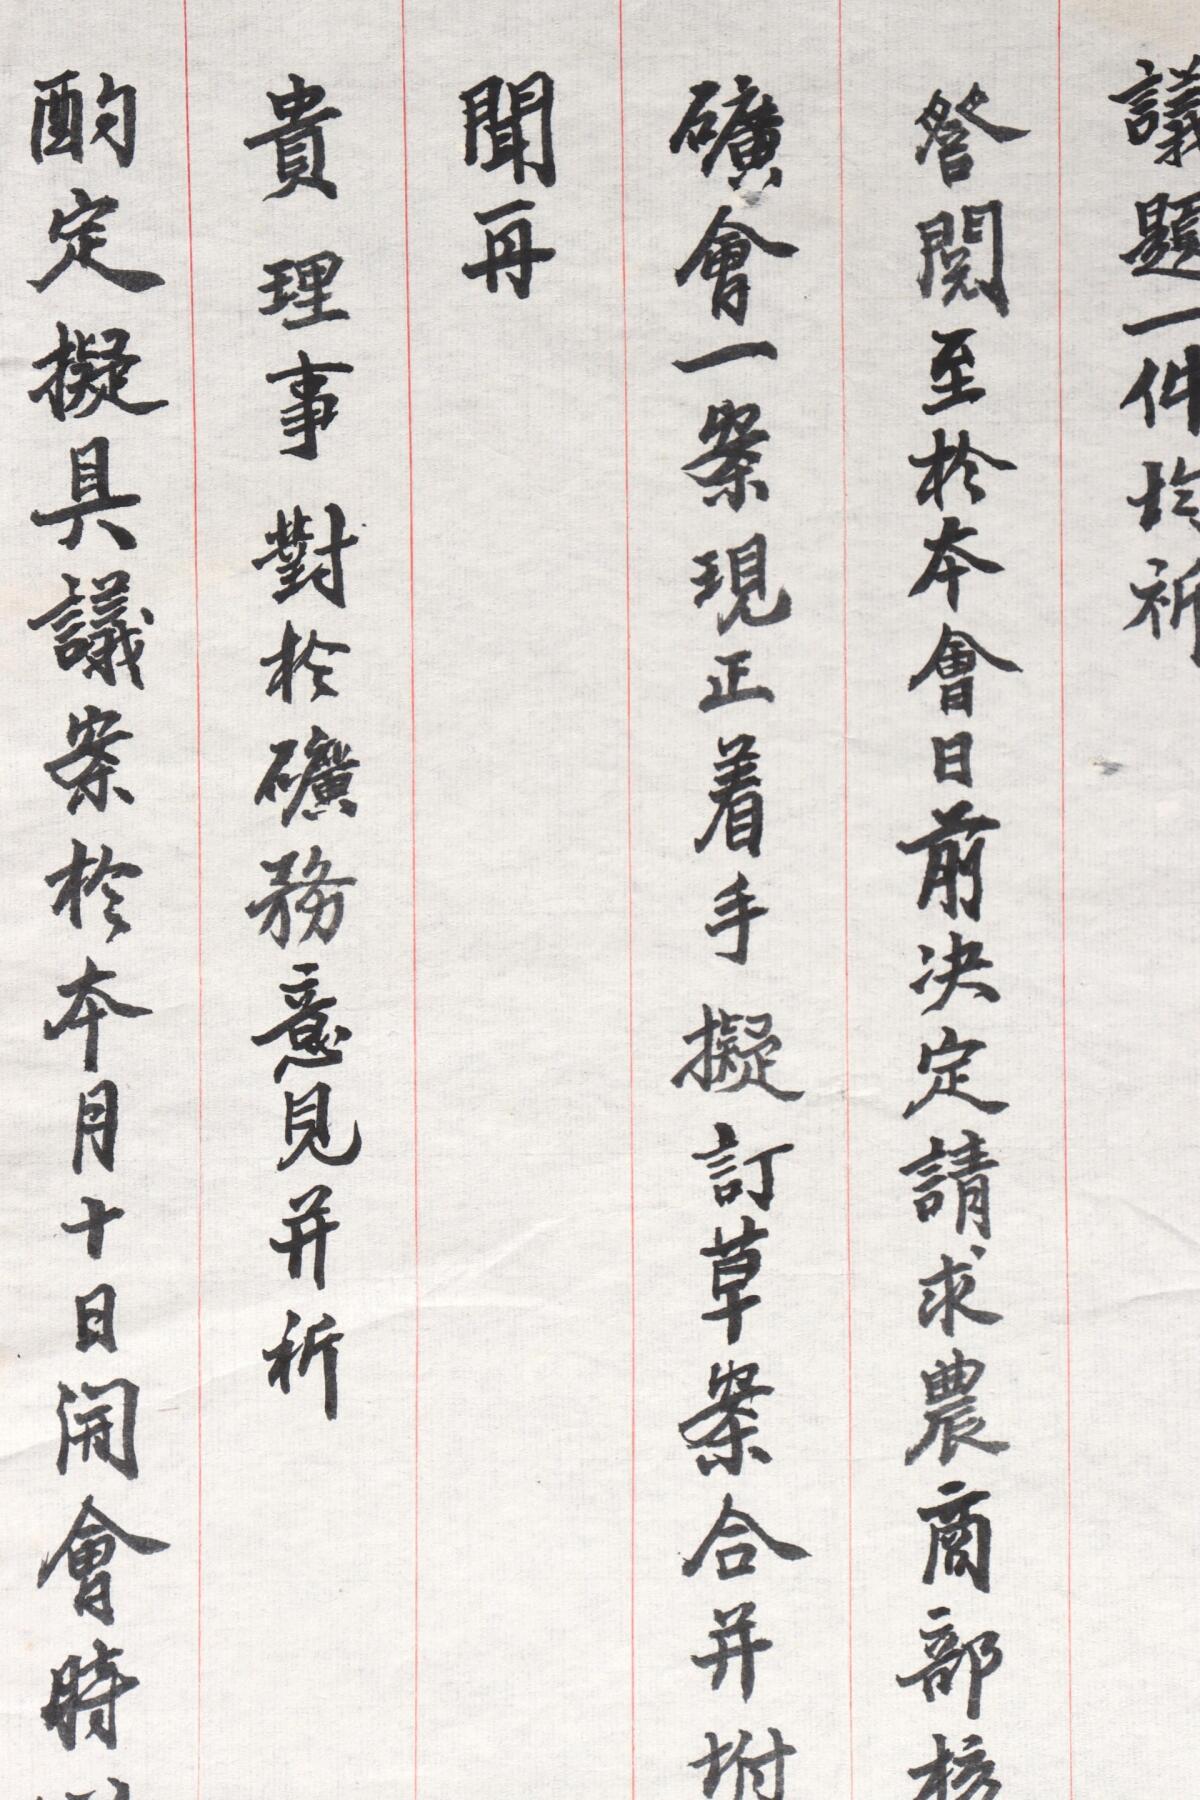 議題一件均祈
詧閱至於本會日前決定請求農商部核
礦會一案現正着手擬訂草案合并坿
聞再
貴理事對於礦務意見并祈
酌定擬具議案於本月十日開會時